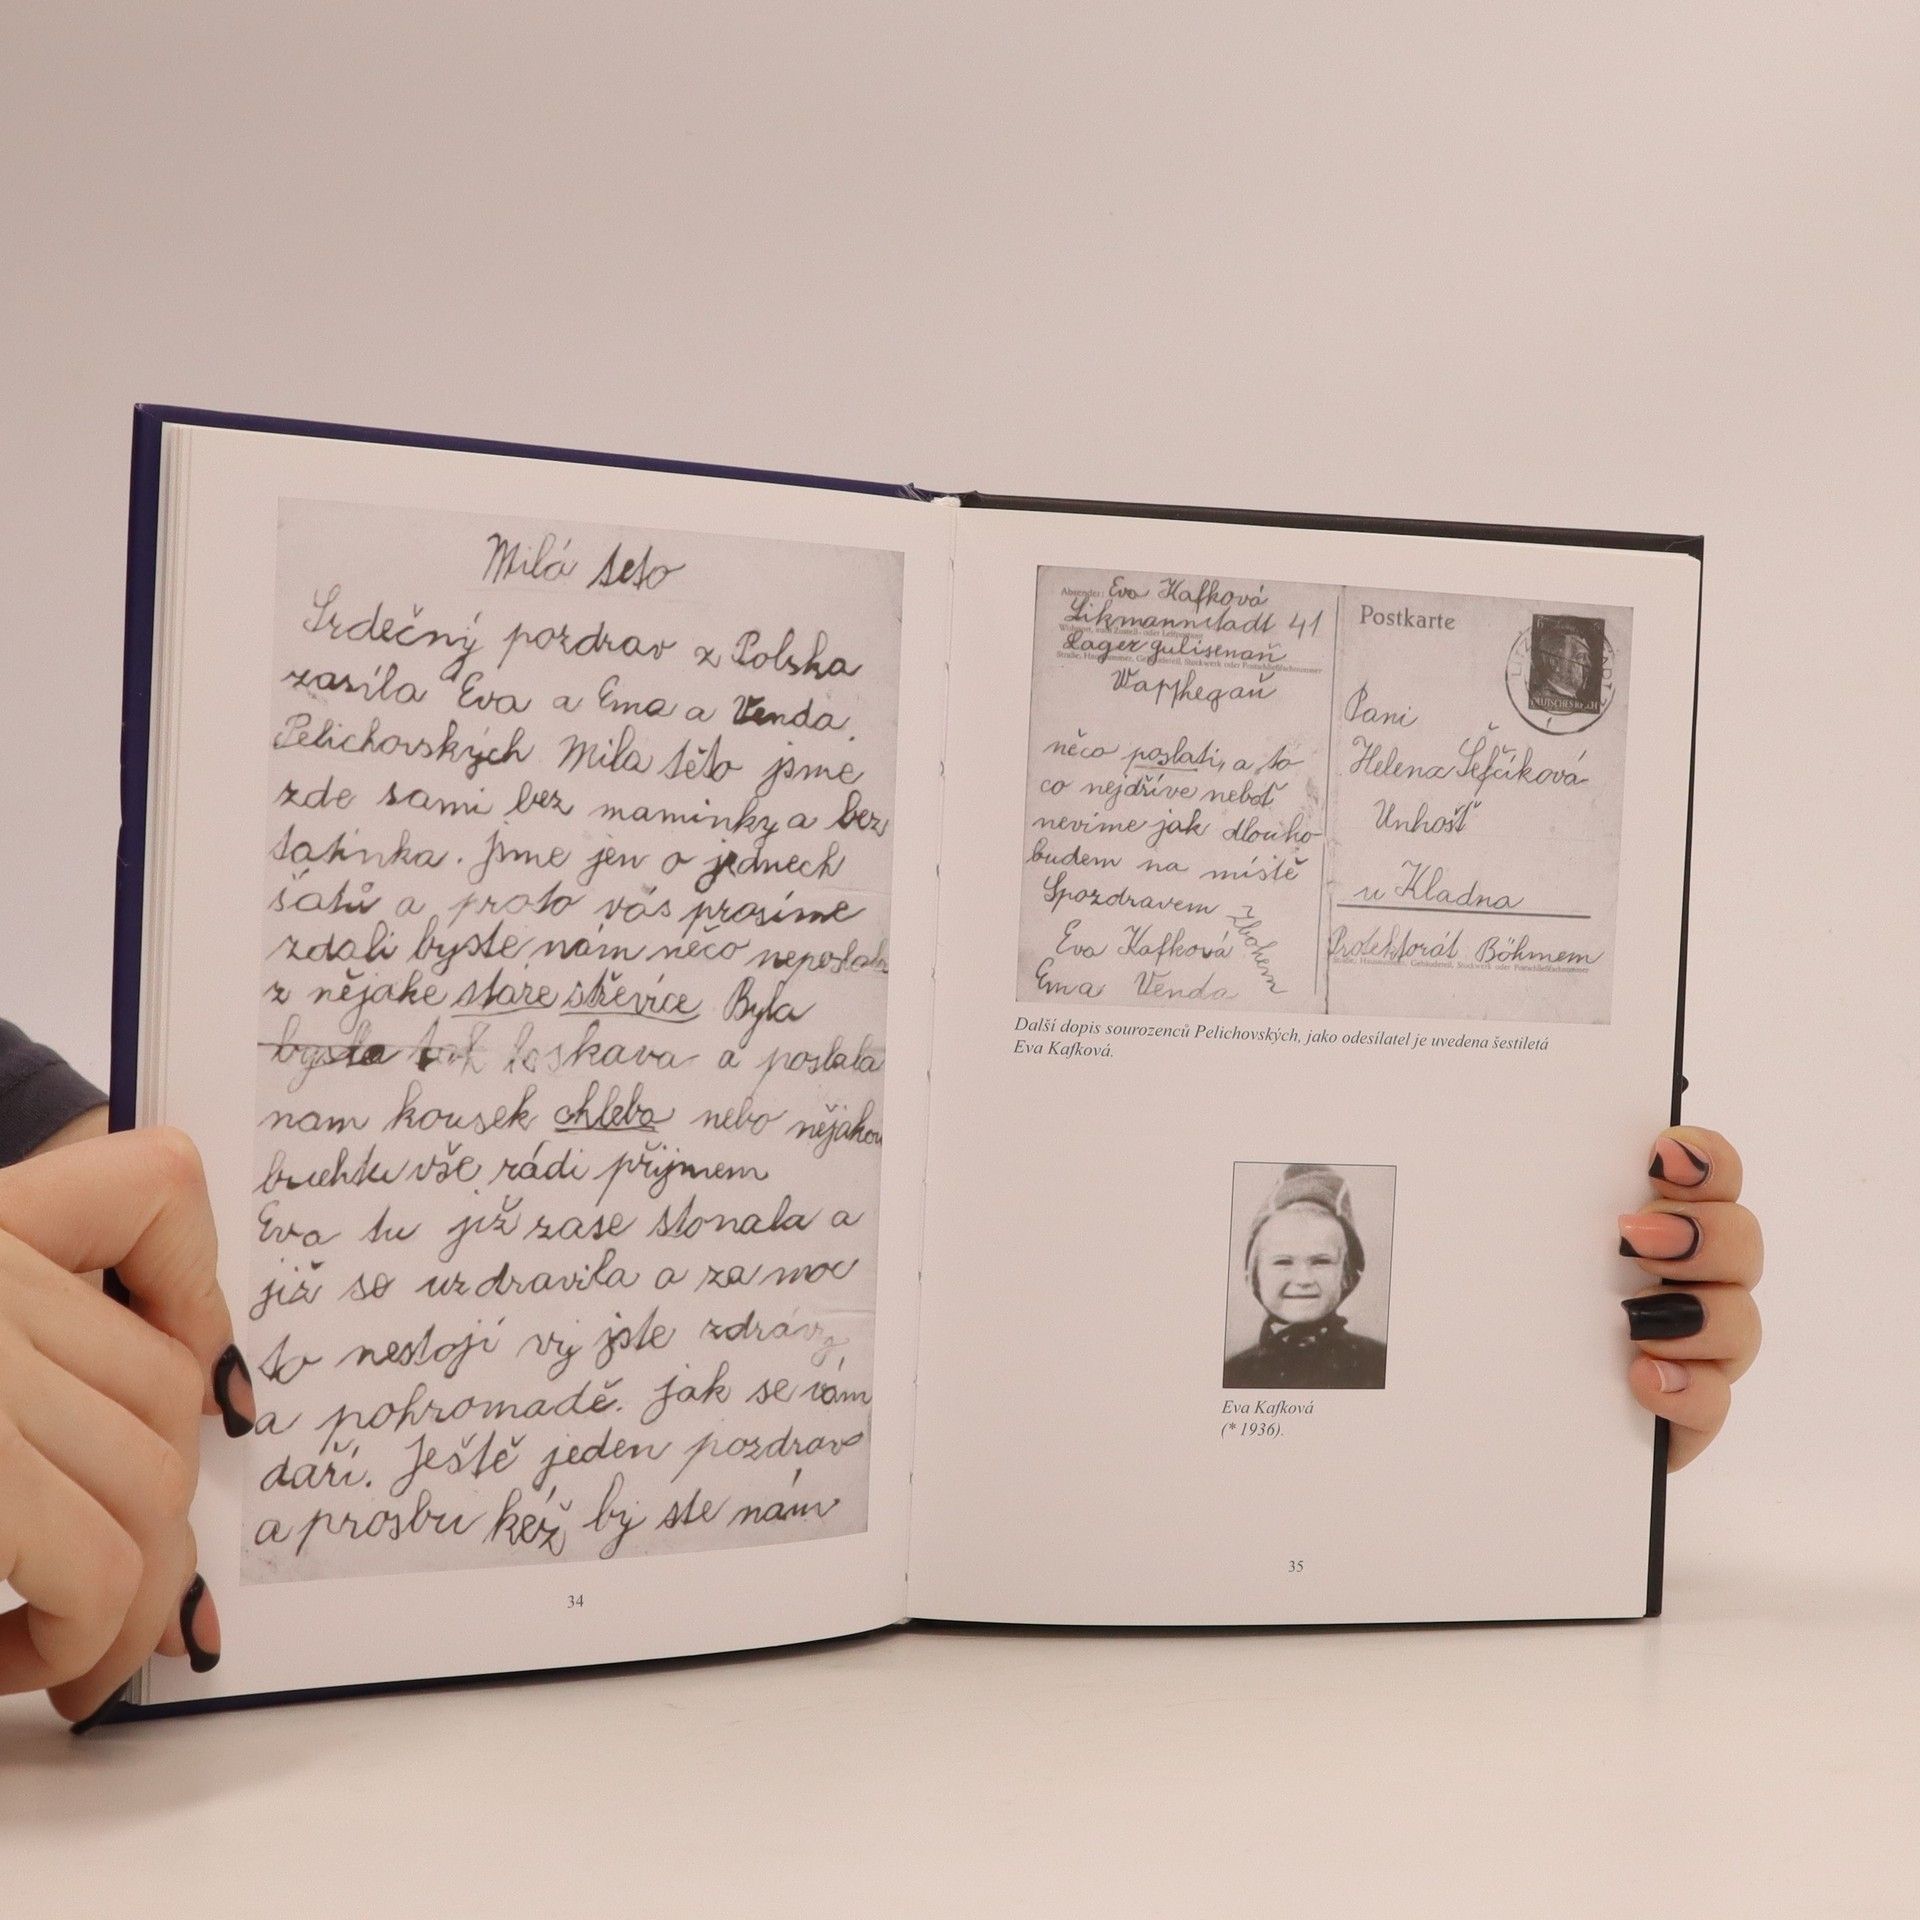 Milá teto
Srdečný pozdrav z Polska
zasíla Eva a Ema a Venda.
Pelichovských Mila těto jsme
zde sami bez maminky a bez
tatínka. jsme jen o jednech
šatů a proto vás prosíme
zdali byste nám něco neposlala
z nějake stare střevíce Byla
bysta tak laskava a poslala
nam kousek chleba nebo nějakou
buchtu vše rádi přijmem
Eva tu již zase stonala a
již se uzdravila a za moc
to nestojí vy jste zdrávy
a pohromadě. jak se vám
daří. Ještě jeden pozdrav
a prosbu kéž by ste nám
34
Absender: Eva Kafková
Likmannstadt 41
Wohnort, auch Zustell- oder Leitpostamt
Lager gulisenaň
Straße, Hausnummer, Gebäudeteil, Stockwerk oder Postschließfachnummer
Wapphegaň
něco poslati, a to
co nejdříve neboť
nevíme jak dlouho
budem na místě
Spozdravem
zbohem
Eva Kafková
Ema Venda
Postkarte
6
DEUTSCHES REICH
Pani
Helena Šefčíková
Unhošť
u Kladna
Protektorát Böhmem
Straße, Hausnummer, Gebäudeteil, Stockwerk oder Postschließfachnummer
Další dopis sourozenců Pelichovských, jako odesílatel je uvedena šestiletá
Eva Kafková.
Eva Kafková
(* 1936).
35